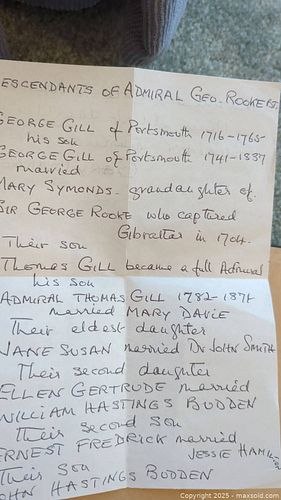 ESCENDANTS OF ADMIRAL GEO. ROOKE
GEORGE GILL of Portsmouth 1716-1765
his son
GEORGE GILL of Portsmouth 1741-1837
married
MARY SYMONDS - grandaughter of
SIR GEORGE ROOKE who captured
Gibraltar in 1704.
Their son
THOMAS GILL became a full Admiral
his son
ADMIRAL THOMAS GILL 1782-1874
married MARY DAVIE
Their eldest daughter
JANE SUSAN married Dr JOHN SMITH
Their second daughter
ELLEN GERTRUDE married
WILLIAM HASTINGS BUDDEN
Their second son
ERNEST FREDRICK married
JESSIE
Their son
OHN HASTINGS BUDDEN
© Copyright 2025 - maxsold.com